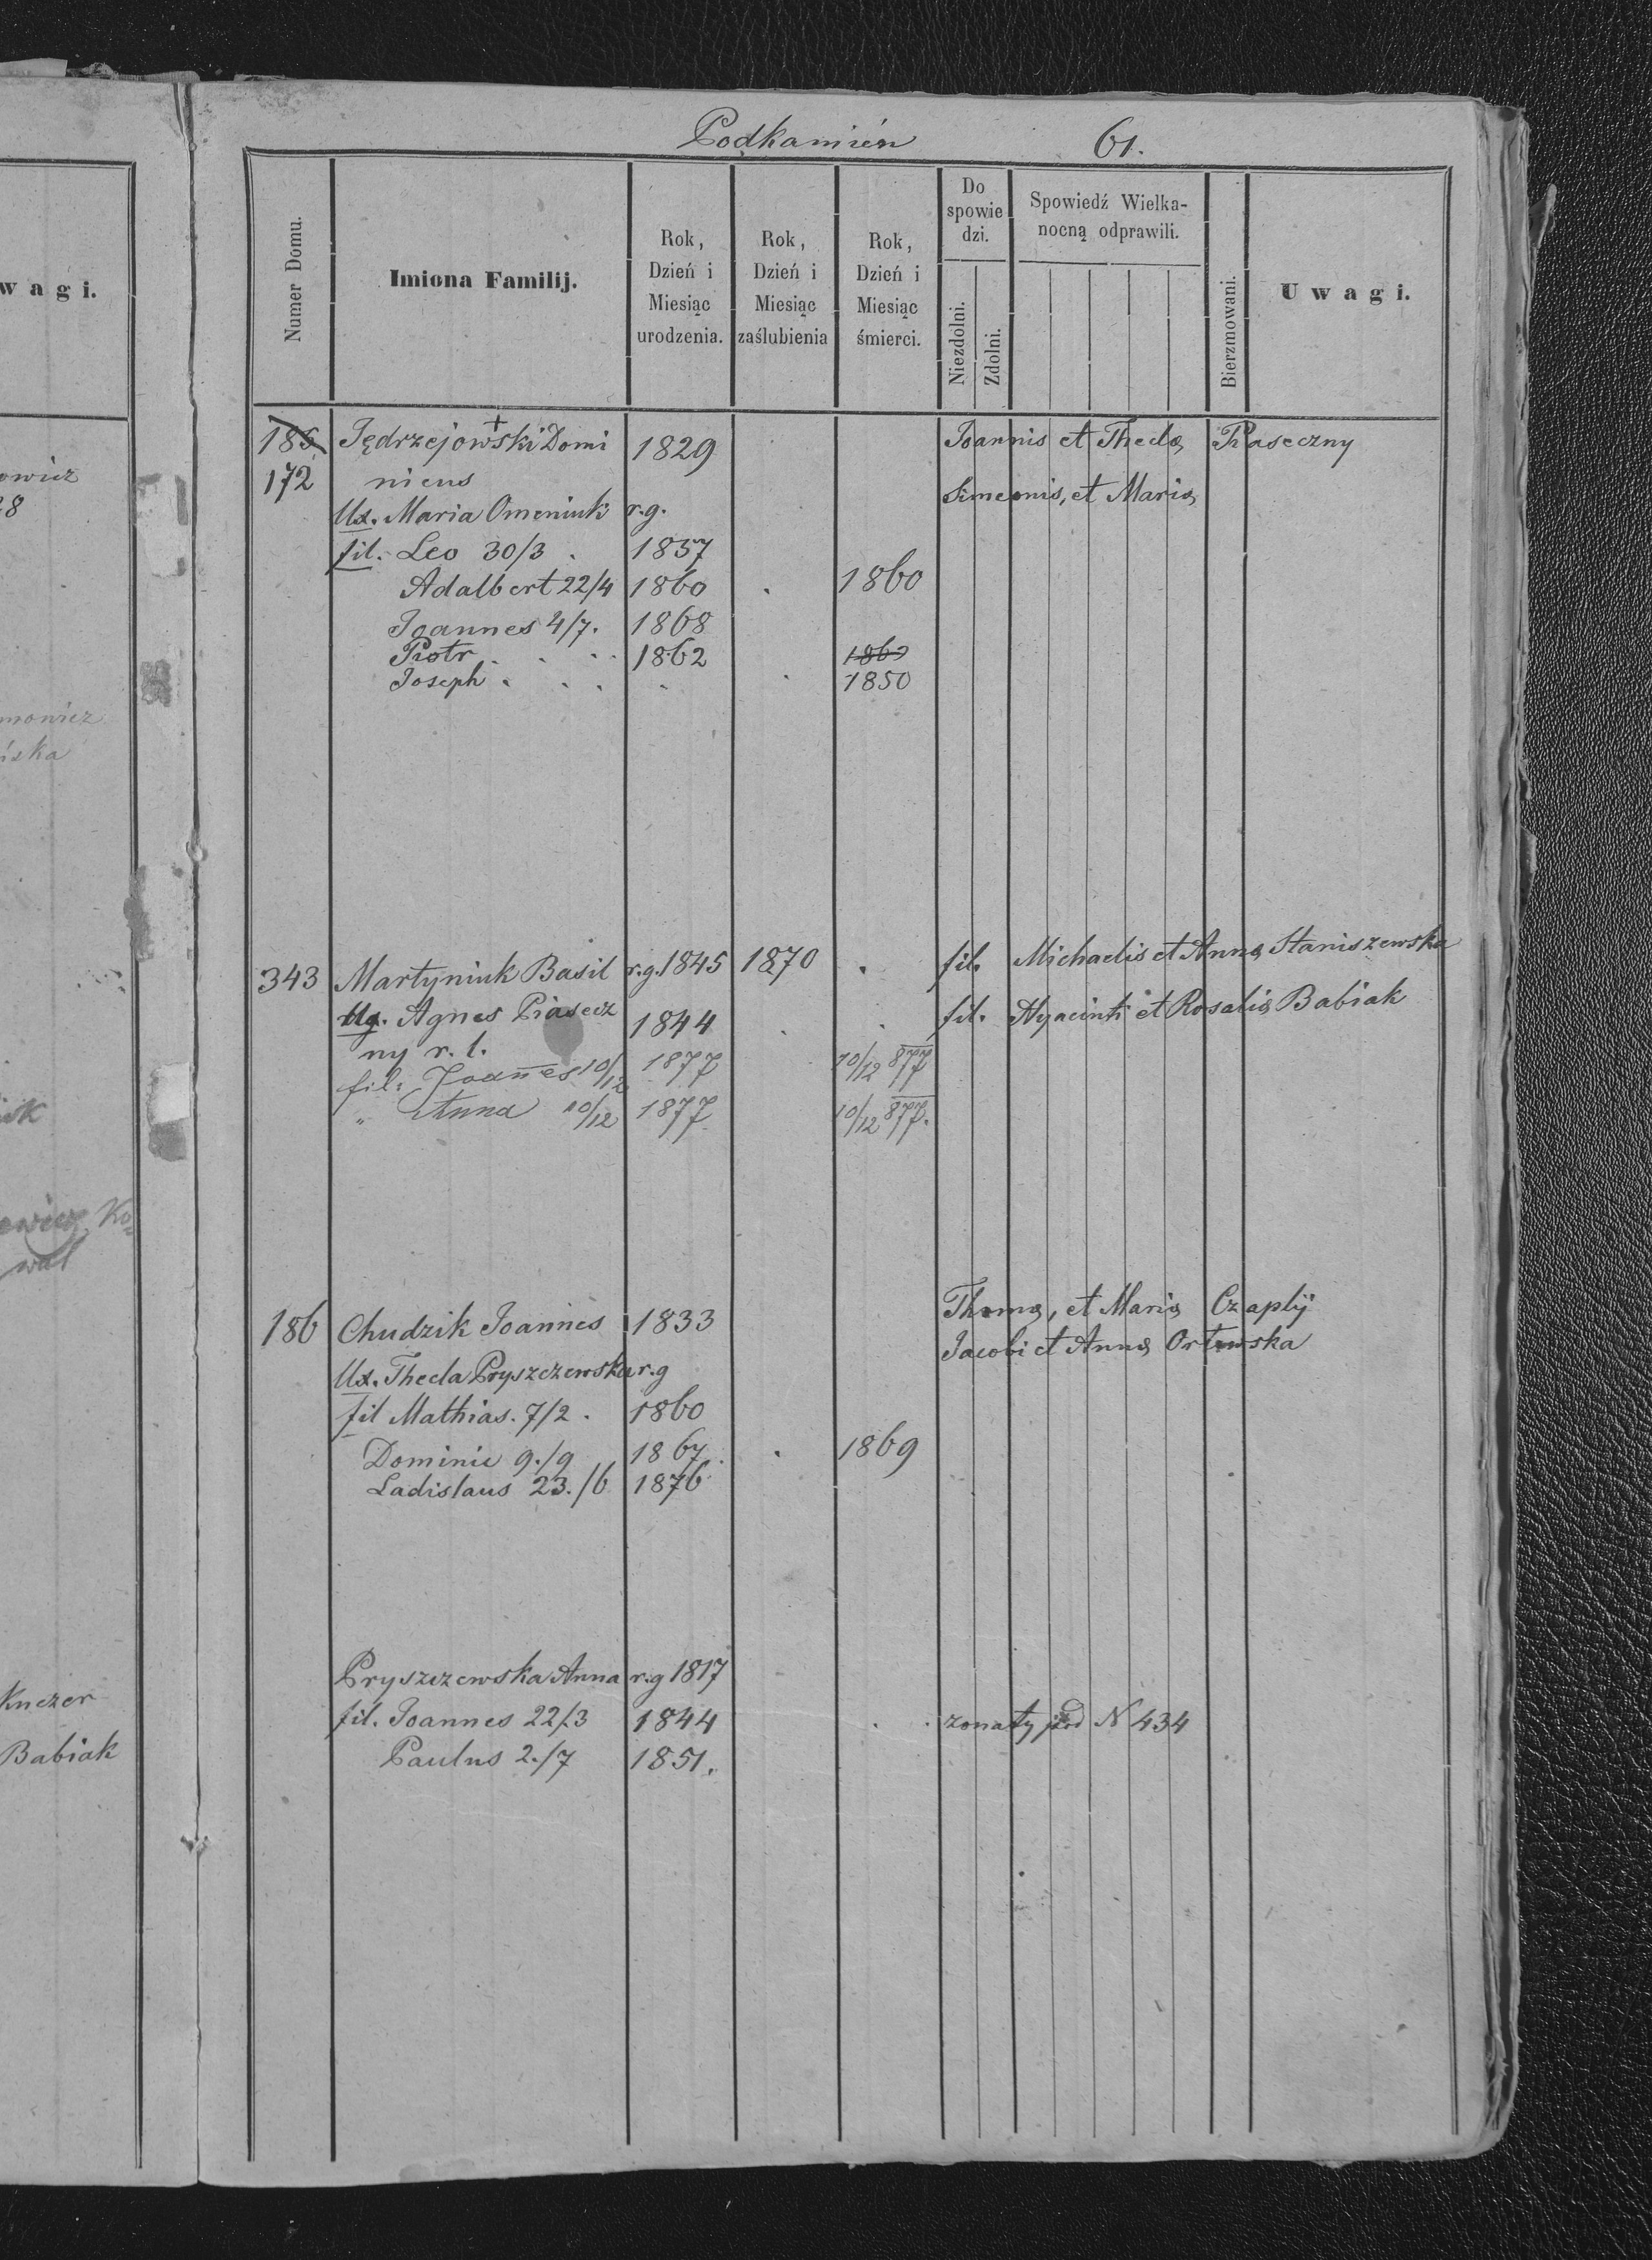 Podkamień 61.
w a g i.
Numer Domu.
Imiona Familij.
Rok, Dzień i Miesiąc urodzenia.
Rok, Dzień i Miesiąc zaślubienia
Rok, Dzień i Miesiąc śmierci.
Do spowie dzi.
Niezdolni.
Zdolni.
Spowiedź Wielka-
nocną odprawili.
Bierzmowani.
U w a g i.
185 Jędrzejowski Domi 1829 Joannis et Thecla Piaseczny
172 nicus Simeonis, et Maria
Ux. Maria Omeniuk r.g.
fil. Leo 30/3 . 1857
Adalbert 22/4 1860 . 1860
Joannes 4/7. 1868
Piotr . . . . 1862 1860
Joseph . . . . . 1850
343 Martyniuk Basil r.g. 1845 1870 . fil. Michaelis et Anna Staniszewska
Ux. Agnes Piasecz 1844 . . fil. Hyacinti et Rosalia Babiak
ny r. l.
fil: Joannes 10/12 1877 10/12 877
" Anna 10/12 1877 10/12 877.
186 Chudzik Joannes 1833 Thoma, et Maria Czaplij
Ux. Thecla Pryszczewska r.g Jacobi et Anna Ortowska
fil Mathias. 7/2 . 1860
Dominic 9./9 1867. . 1869
Ladislaus 23./6 1876
Pryszczewska Anna r.g 1817
fil. Joannes 22/.3 1844 . . zonaty pod N 434
Paulus 2./7 1851.
owicz
28
mowicz
ińska
ewicz Ko=
wal
Kuczer
Babiak